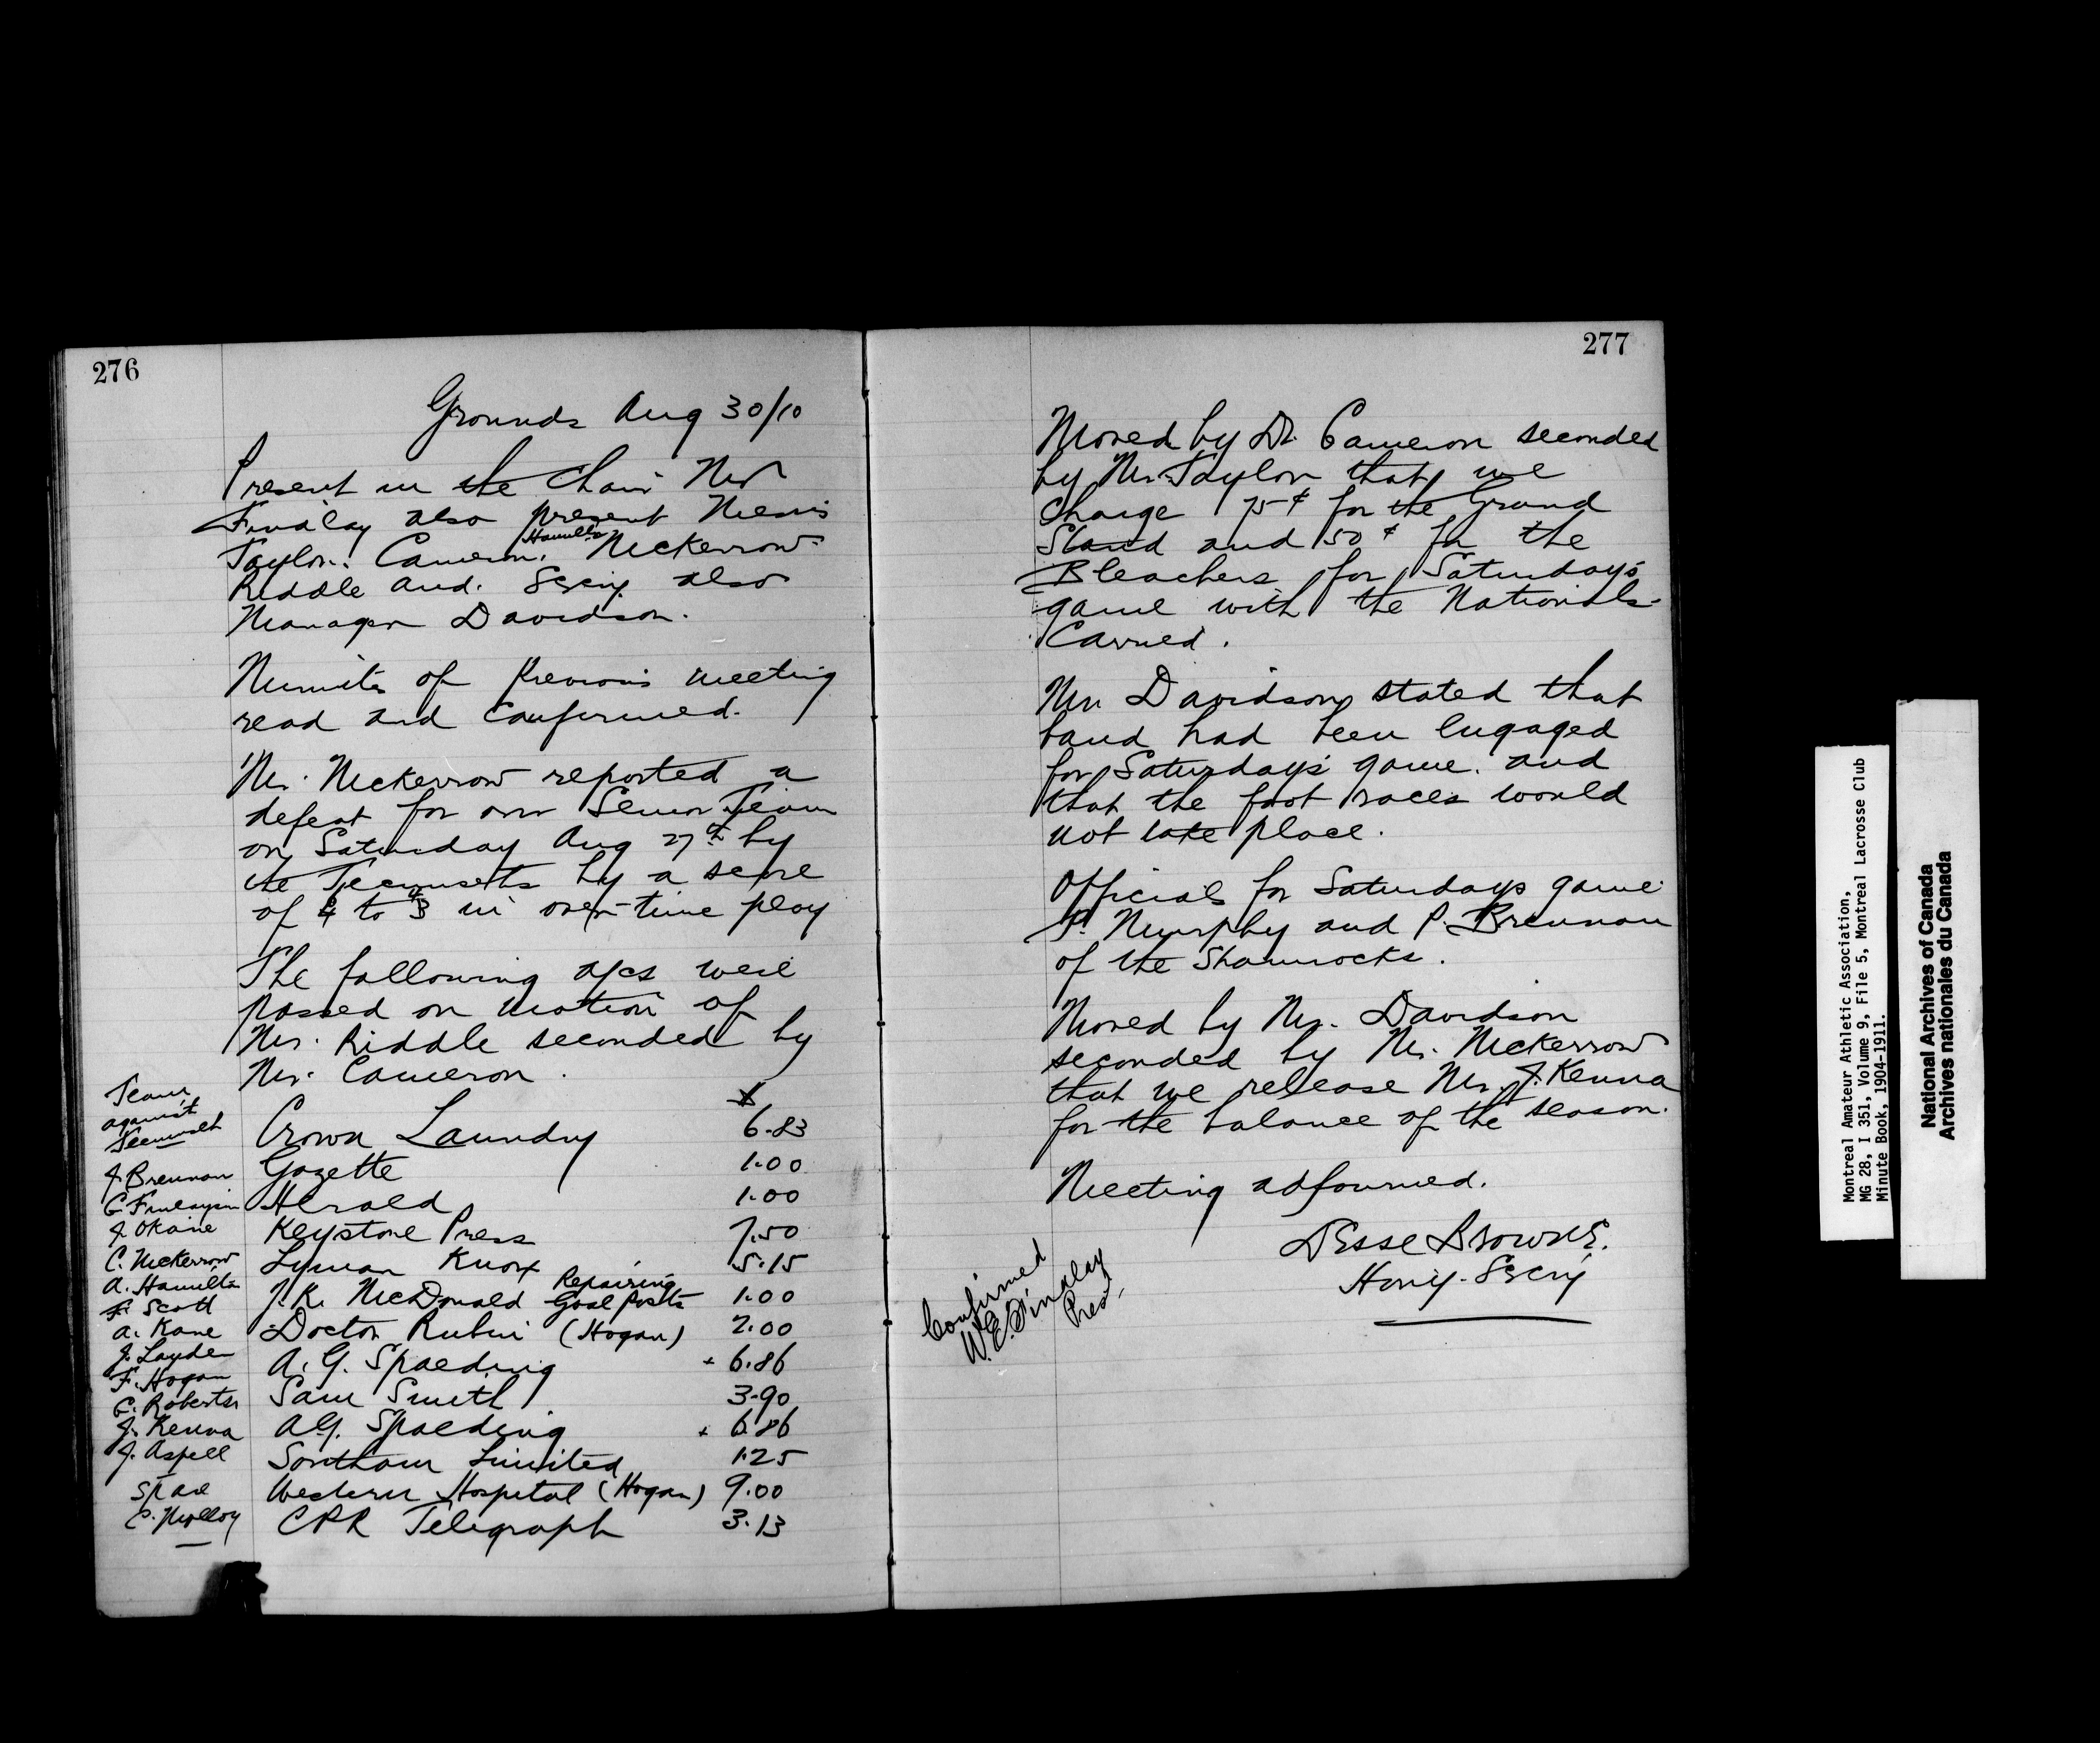 276
Grounds Aug 30/10
Present in the Chair Mr
Findlay also present Messrs
Hamilton
Taylor. Cameron. McKerrow
Riddle and. Secy. also
Manager Davidson.
Minutes of Previous meeting
read and confirmed.
Mr. McKerrow reported a
defeat for our Senior Team
on Saturday Aug 27th by
the Tecumsehs by a score
of 4 to 3 in over-time play
The following a/cs were
passed on motion of
Mr. Riddle seconded by
Mr. Cameron.
Team
against
Tecumseh
J. Brennan
G. Finlayson
J. OKane
C. McKerrow
A. Hamilton
F. Scott
A. Kane
J. Layden
F. Hogan
C. Roberts
J. Kenna
J. Aspell
Spare
C. Molloy
$
Crown Laundry 6.83
Gazette 1.00
Herald 1.00
Keystone Press 7.50
Lyman Knox 5.15
J.K. McDonald Repairing Goal Posts 1.00
Doctor Rubin (Hogan) 2.00
A. G. Spaeding + 6.86
Sam Smith 3.90
A.G. Spaeding + 6.86
Southam Limited 1.25
Western Hospital (Hogan) 9.00
CPR Telegraph 3.13
277
Moved by Dr. Cameron seconded
by Mr. Taylor that we
Charge 75¢ for the Grand
Stand and 50¢ for the
Bleachers for Saturday's
game with the Nationals-
Carried.
Mr. Davidson stated that
band had been engaged
for Saturday's game. and
that the foot races would
not take place.
Officials for Saturdays game
P. Murphy and P. Brennan
of the Shamrocks.
Moved by Mr. Davidson
seconded by Mr. McKerrow
that we release Mr. J. Kenna
for the balance of the season.
Meeting adjourned.
Jesse Browne.
Hon'y. Sec'y
Confirmed
W.E. Finalay
Pres.
Montreal Amateur Athletic Association,
MG 28, I 351, Volume 9, File 5, Montreal Lacrosse Club
Minute Book, 1904-1911.
National Archives of Canada
Archives nationales du Canada